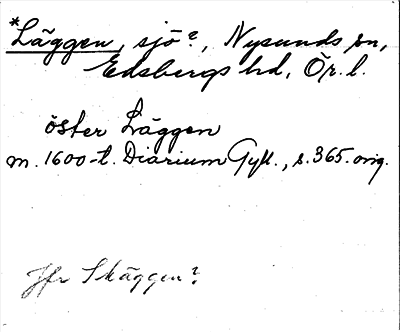 *Läggen, sjö?, Nysunds sn,
Edsbergs hd, Ör. l.
öster Läggen
m. 1600-t. Diarium Gyll., s. 365. orig.
Jfr Skäggen?